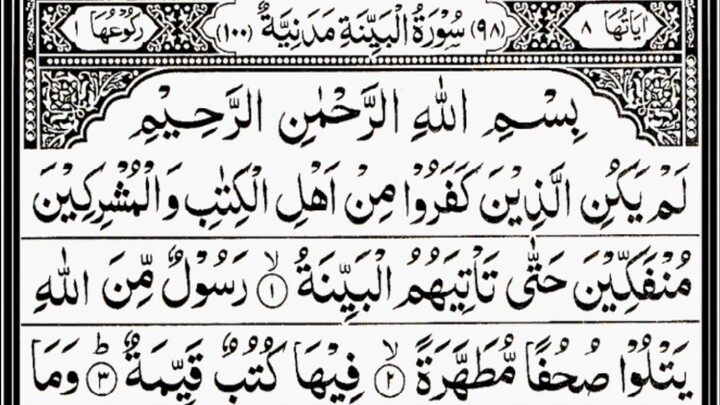 اٰيَاتُهَا ٨ (٩٨) سُوْرَةُ الْبَيِّنَةِ مَدَنِيَّةٌ (١٠٠) رُكُوْعُهَا ١
بِسْمِ اللّٰهِ الرَّحْمٰنِ الرَّحِيْمِ
لَمْ يَكُنِ الَّذِيْنَ كَفَرُوْا مِنْ اَهْلِ الْكِتٰبِ وَالْمُشْرِكِيْنَ
مُنْفَكِّيْنَ حَتّٰى تَاْتِيَهُمُ الْبَيِّنَةُ ۙ﴿١﴾ رَسُوْلٌ مِّنَ اللّٰهِ
يَتْلُوْا صُحُفًا مُّطَهَّرَةً ۙ﴿٢﴾ فِيْهَا كُتُبٌ قَيِّمَةٌ ؕ﴿٣﴾ وَمَا